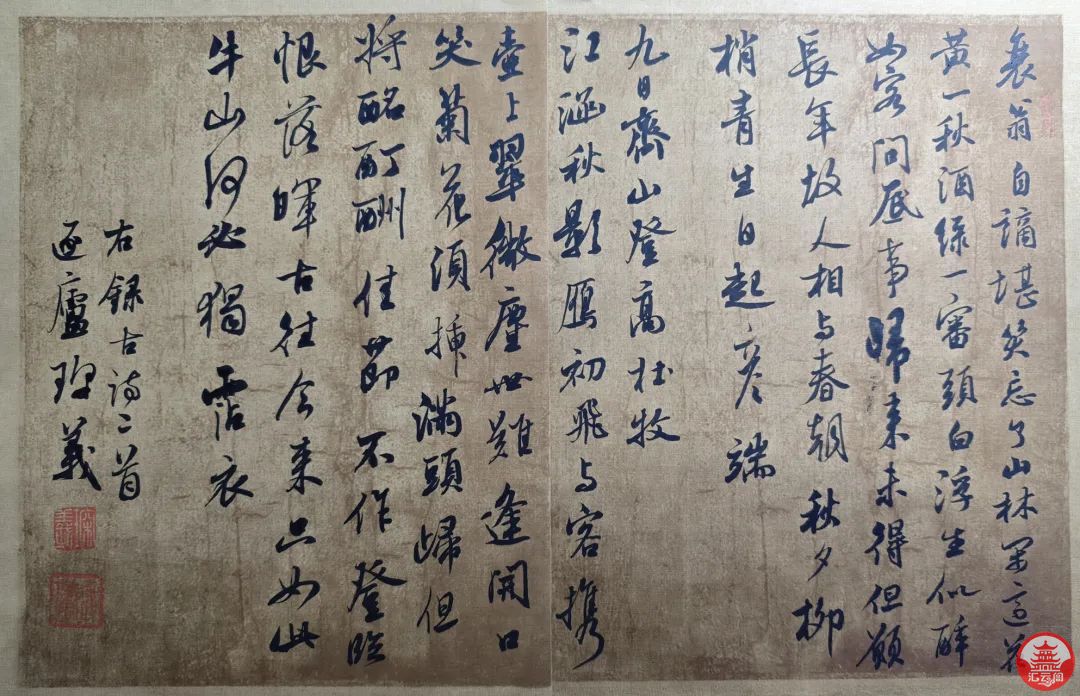 衰翁自謫堪笑忘了山林花
黃一秋酒綠一審頭白浮生似醉
如客問底事歸來未得但願
長年故人相与春朝秋夕柳
梢青生日趙彥端
九日齊山登高杜牧
江涵秋影鴈初飛与客攜
壺上翠微塵世難逢開口
笑菊花須插滿頭歸但
將酩酊酬佳節不作登臨
恨落暉古往今來只如此
牛山何必獨霑衣
右錄古詩二首
廬義
汇云阁